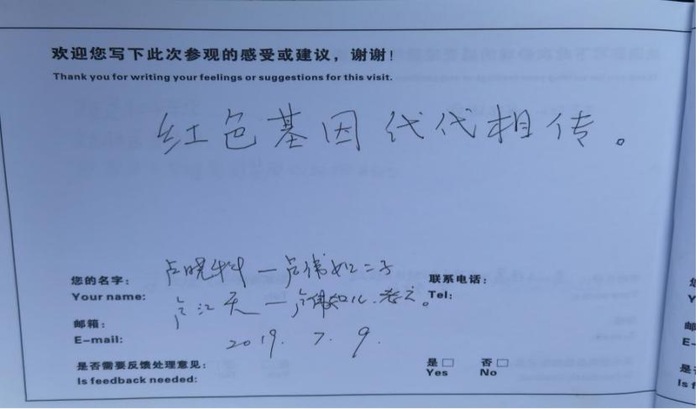 欢迎您写下此次参观的感受或建议，谢谢！
Thank you for writing your feelings or suggestions for this visit.
红色基因代代相传。
您的名字：
Your name:
卢晓 — 卢伟如二子
江天 —
联系电话：
Tel:
邮箱：
E-mail:
2019. 7. 9.
是否需要反馈处理意见：
Is feedback needed:
是□ 否□
Yes No